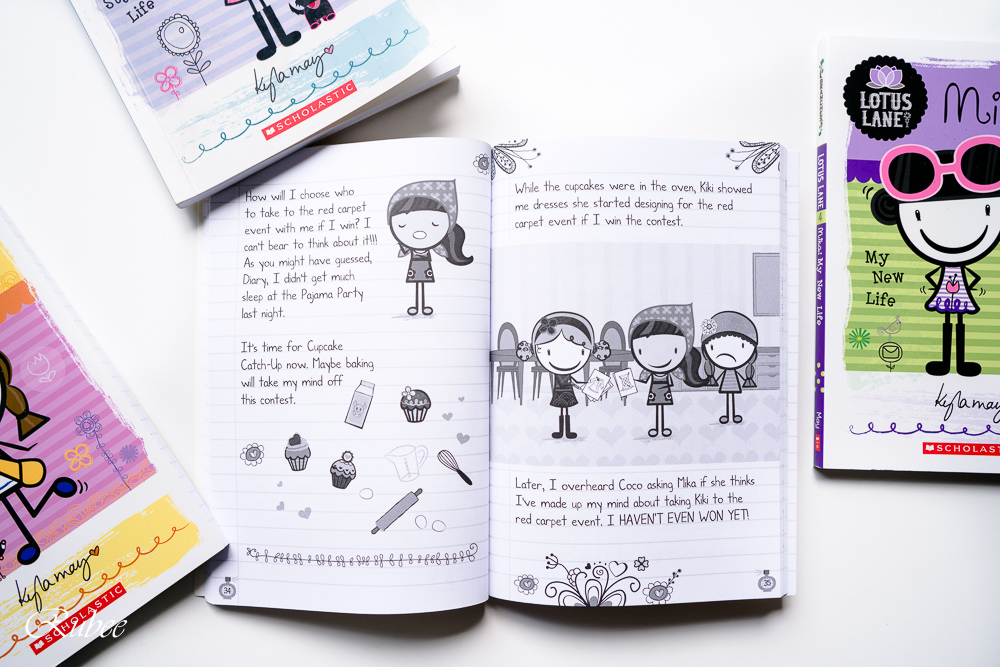 Life
kyla may
SCHOLASTIC
LOTUS
LANE
Mi
LOTUS LANE
Mika: My New Life
May
My
New
Life
kyla may
SCHOLASTIC
How will I choose who
to take to the red carpet
event with me if I win? I
can't bear to think about it!!!
As you might have guessed,
Diary, I didn't get much
sleep at the Pajama Party
last night.
It's time for Cupcake
Catch-Up now. Maybe baking
will take my mind off
this contest.
34
While the cupcakes were in the oven, Kiki showed
me dresses she started designing for the red
carpet event if I win the contest.
Later, I overheard Coco asking Mika if she thinks
I've made up my mind about taking Kiki to the
red carpet event. I HAVEN'T EVEN WON YET!
35
kyla may
SCHOLASTIC
Rubee